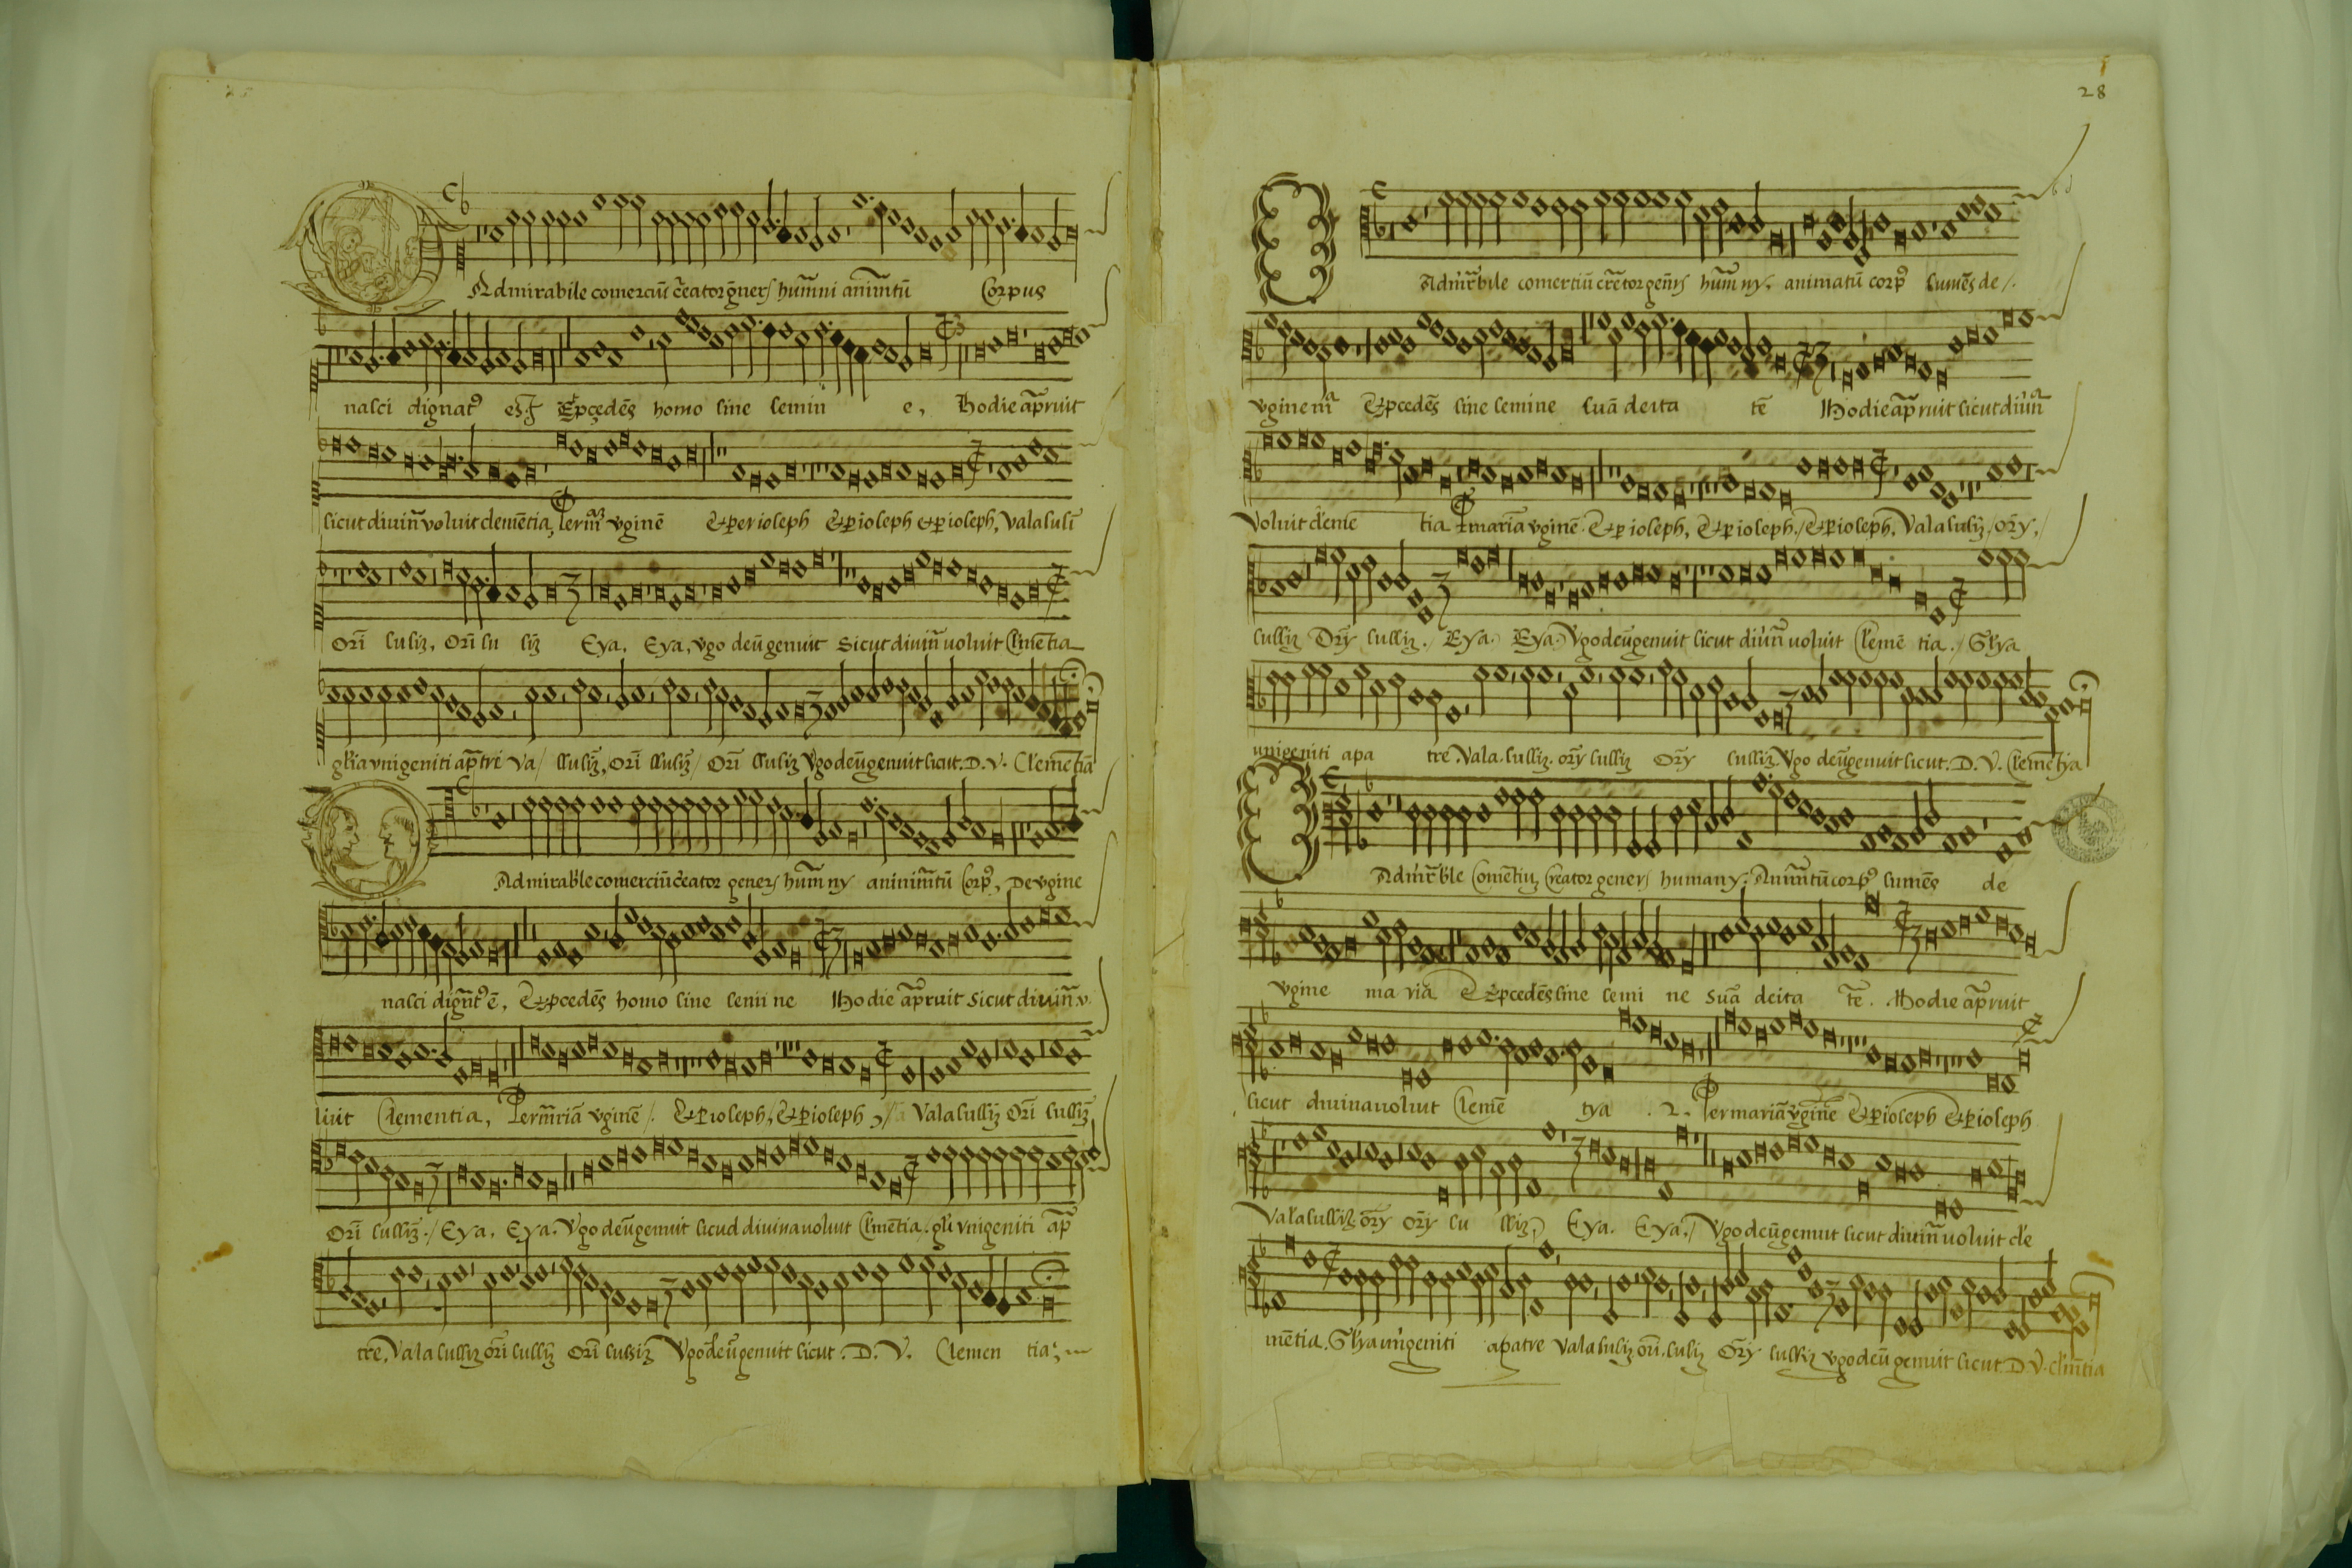 O Admirabile comerciũ c̃eator g̃ners hum̃ni anim̃tũ Corpus
nasci dignatꝰ es. Et p̱cedẽs homo sine semin e, Hodie ap̃ruit
sicut diuiñ voluit clemẽtia, Per m̃ vginẽ & ꝑ ioseph & ꝑ ioseph & ꝑ ioseph, Valasulĩ
Orĩ suliz, Orĩ su liz̃ Eya, Eya, vgo deũ genuit Sicut diuiñ uoluit Clmẽtia
gľia vnigeniti ap̃tre Va/ lluliz̃, Orĩ lluliz̃/ Orĩ lluliz Vgo deũ genuit sicut. D. V. Clemẽtia
O Admirable comerciũ c̃eator geners hum̃ ny aninim̃tũ Corpꝰ, De vgine
nasci dign̄tꝰ ẽ, & p̱cedẽs homo sine semi ne Hodie ap̃ruit Sicut diuiñ v.
luit Clementia, Per m̃riã vginẽ /. & ꝑ ioseph, & ꝑ ioseph Valasulliz̃ Orĩ sulliz̃
Orĩ sulliz̃ ./ Eya, Eya. Vgo deũ genuit sicud diuina uoluit Clmẽtia. gľi vnigeniti ap̃
tre, Vala sulliz orĩ sulliz̃ Orĩ sulsiz Vgo deũ genuit sicut . D. V. Clemen tia
28
O Admir̃bile comertiũ cr̃etor geñrs hum̃ ny, animatũ corpꝰ sumẽs de /.
vgine m̃ & p̱cedẽs sine semine Suã deita tẽ Hodie ap̃ruit sicut diuiñ
Voluit cleme tia P mariã vginẽ. & ꝑ ioseph, & ꝑ ioseph. / & ꝑ ioseph, Vala suliz̃/ or̃y, /
sulliz Or̃y sulliz ./ Eya. Eya. Vgo deũ genuit sicut diuiñ uoluit Clemẽ tia ./ Glya
unigeniti apa tre, Vala. sulliz. or̃y sulliz Or̃y sulliz. Vgo deũ genuit. sicut. D. V. Clemẽtya
O Admir̃ble Comẽtiuz Creator geners humany. Anim̃tũ corpꝰ sumẽs de
vgine ma riã & p̱cedẽs sine semi ne Suã deita tẽ. Hodie ap̃ruit
sicut diuina uoluit Clemẽ tya . 2. Per mariã vginẽ & ꝑ ioseph & ꝑ ioseph
Vala sulliz̃ or̃y or̃y su lliz Eya. Eya. / Vgo deũ genuit sicut diuiñ uoluit cle
mẽtia. Glya uñigeniti apatre Vala suliz orĩ. suliz Or̃y sulliz vgo deũ genuit sicut. D. V. clm̃tia